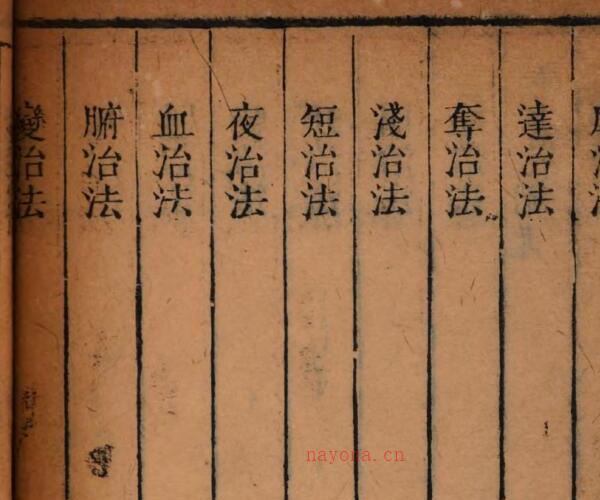 達治法
奪治法
淺治法
短治法
夜治法
血治法
腑治法
變治法
nayona.cn